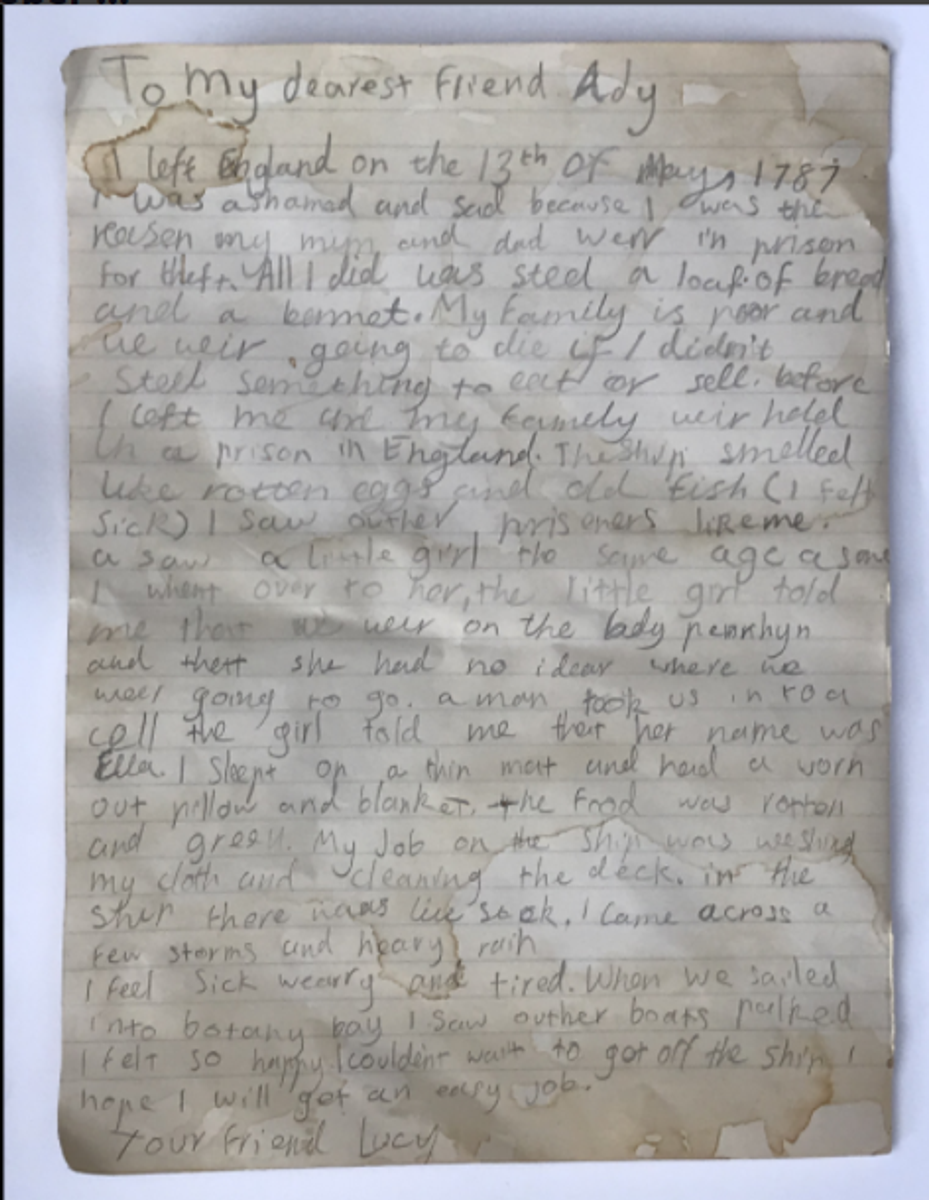 To my dearest friend Ady
I left England on the 13th of May, 1787
I was ashamed and sad because I was the
reason my mum and dad werr in prison
for theft. All I did was steel a loaf of bread
and a bonnet. My family is poor and
we weir going to die if I didn't
steel something to eat or sell. before
I left me and my famely weir held
in a prison in England. The ship smelled
like rotten eggs and old fish (I felt
sick) I saw outher prisoners like me.
a saw a little girl the same age as me
I whent over to her, the little girl told
me that we weir on the lady penrhyn
and thatt she had no idear where we
weir going to go. a man took us in to a
cell the girl told me that her name was
Ella. I Sleept on a thin mat and had a worn
out pillow and blanket. the food was rotten
and green. My Job on the ship was weshing
my cloth and cleaning the deck. in the
ship there was live I came across a
few storms and heavy rain
I feel sick wearry and tired. When we sailed
into botany bay I saw outher boats
I felt so happy I couldent wait to get off the ship I
hope I will get an easy job.
Your friend Lucy